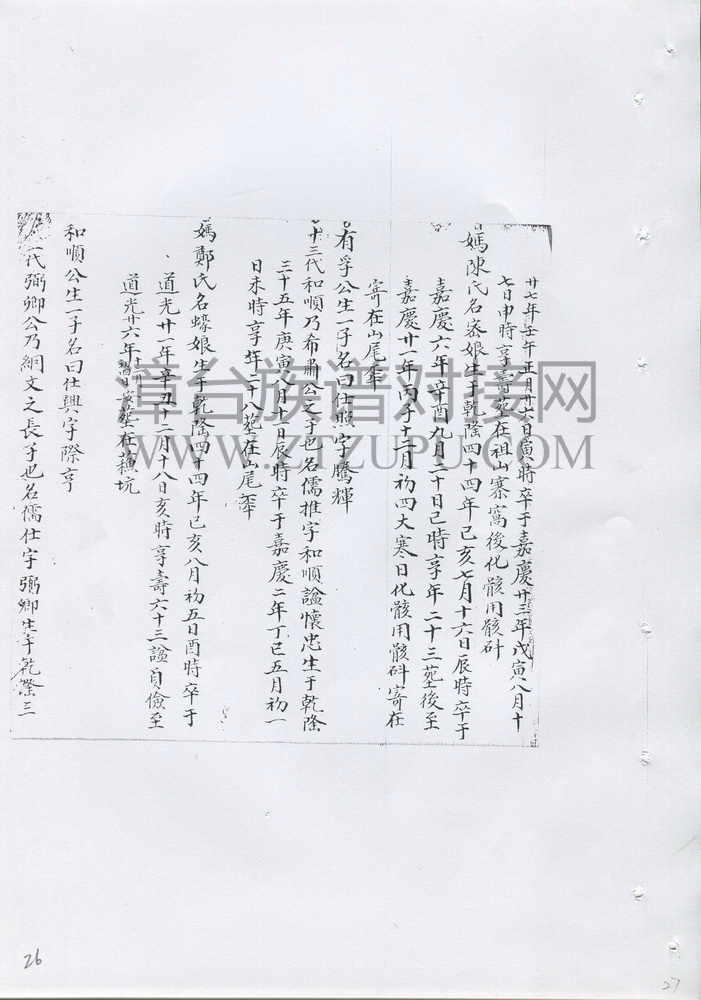 廿七年壬午正月廿六日寅時卒于嘉慶廿三年戊寅八月十
七日申時享壽葬在祖山寨窩後化骸用骸砃
媽陳氏名恭娘生于乾隆四十四年己亥七月十六日辰時卒于
嘉慶六年辛酉九月二十日巳時享年二十三葬後至
嘉慶廿一年丙子十二月初四大寒日化骸用骸砃寄在
寄在山尾
有孚公生一子名曰仕照字騰輝
十三代和順乃希肅公之子也名儒推字和順謚懷忠生于乾隆
三十五年庚寅八月十日辰時卒于嘉慶二年丁巳五月初一
日未時享年二十八葬在山尾
媽鄭氏名蠔娘生于乾隆四十四年已亥八月初五日酉時卒于
道光廿一年辛丑十二月十八日亥時享壽六十三謚貞儉至
道光廿六年十二月日安葬在蘓坑
和順公生一子名曰仕興字際亨
代弼卿公乃綱文之長子也名儒仕字弼卿生于乾隆三
章台族谱对接网
WWW.ZTZUPU.COM
26
27